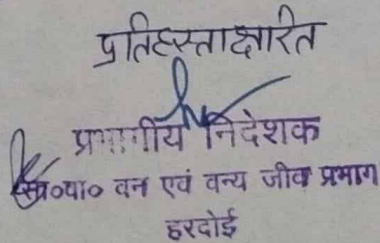 प्रतिहस्ताक्षारित
प्रभागीय निदेशक
सा०वा० वन एवं वन्य जीव प्रभाग
हरदोई